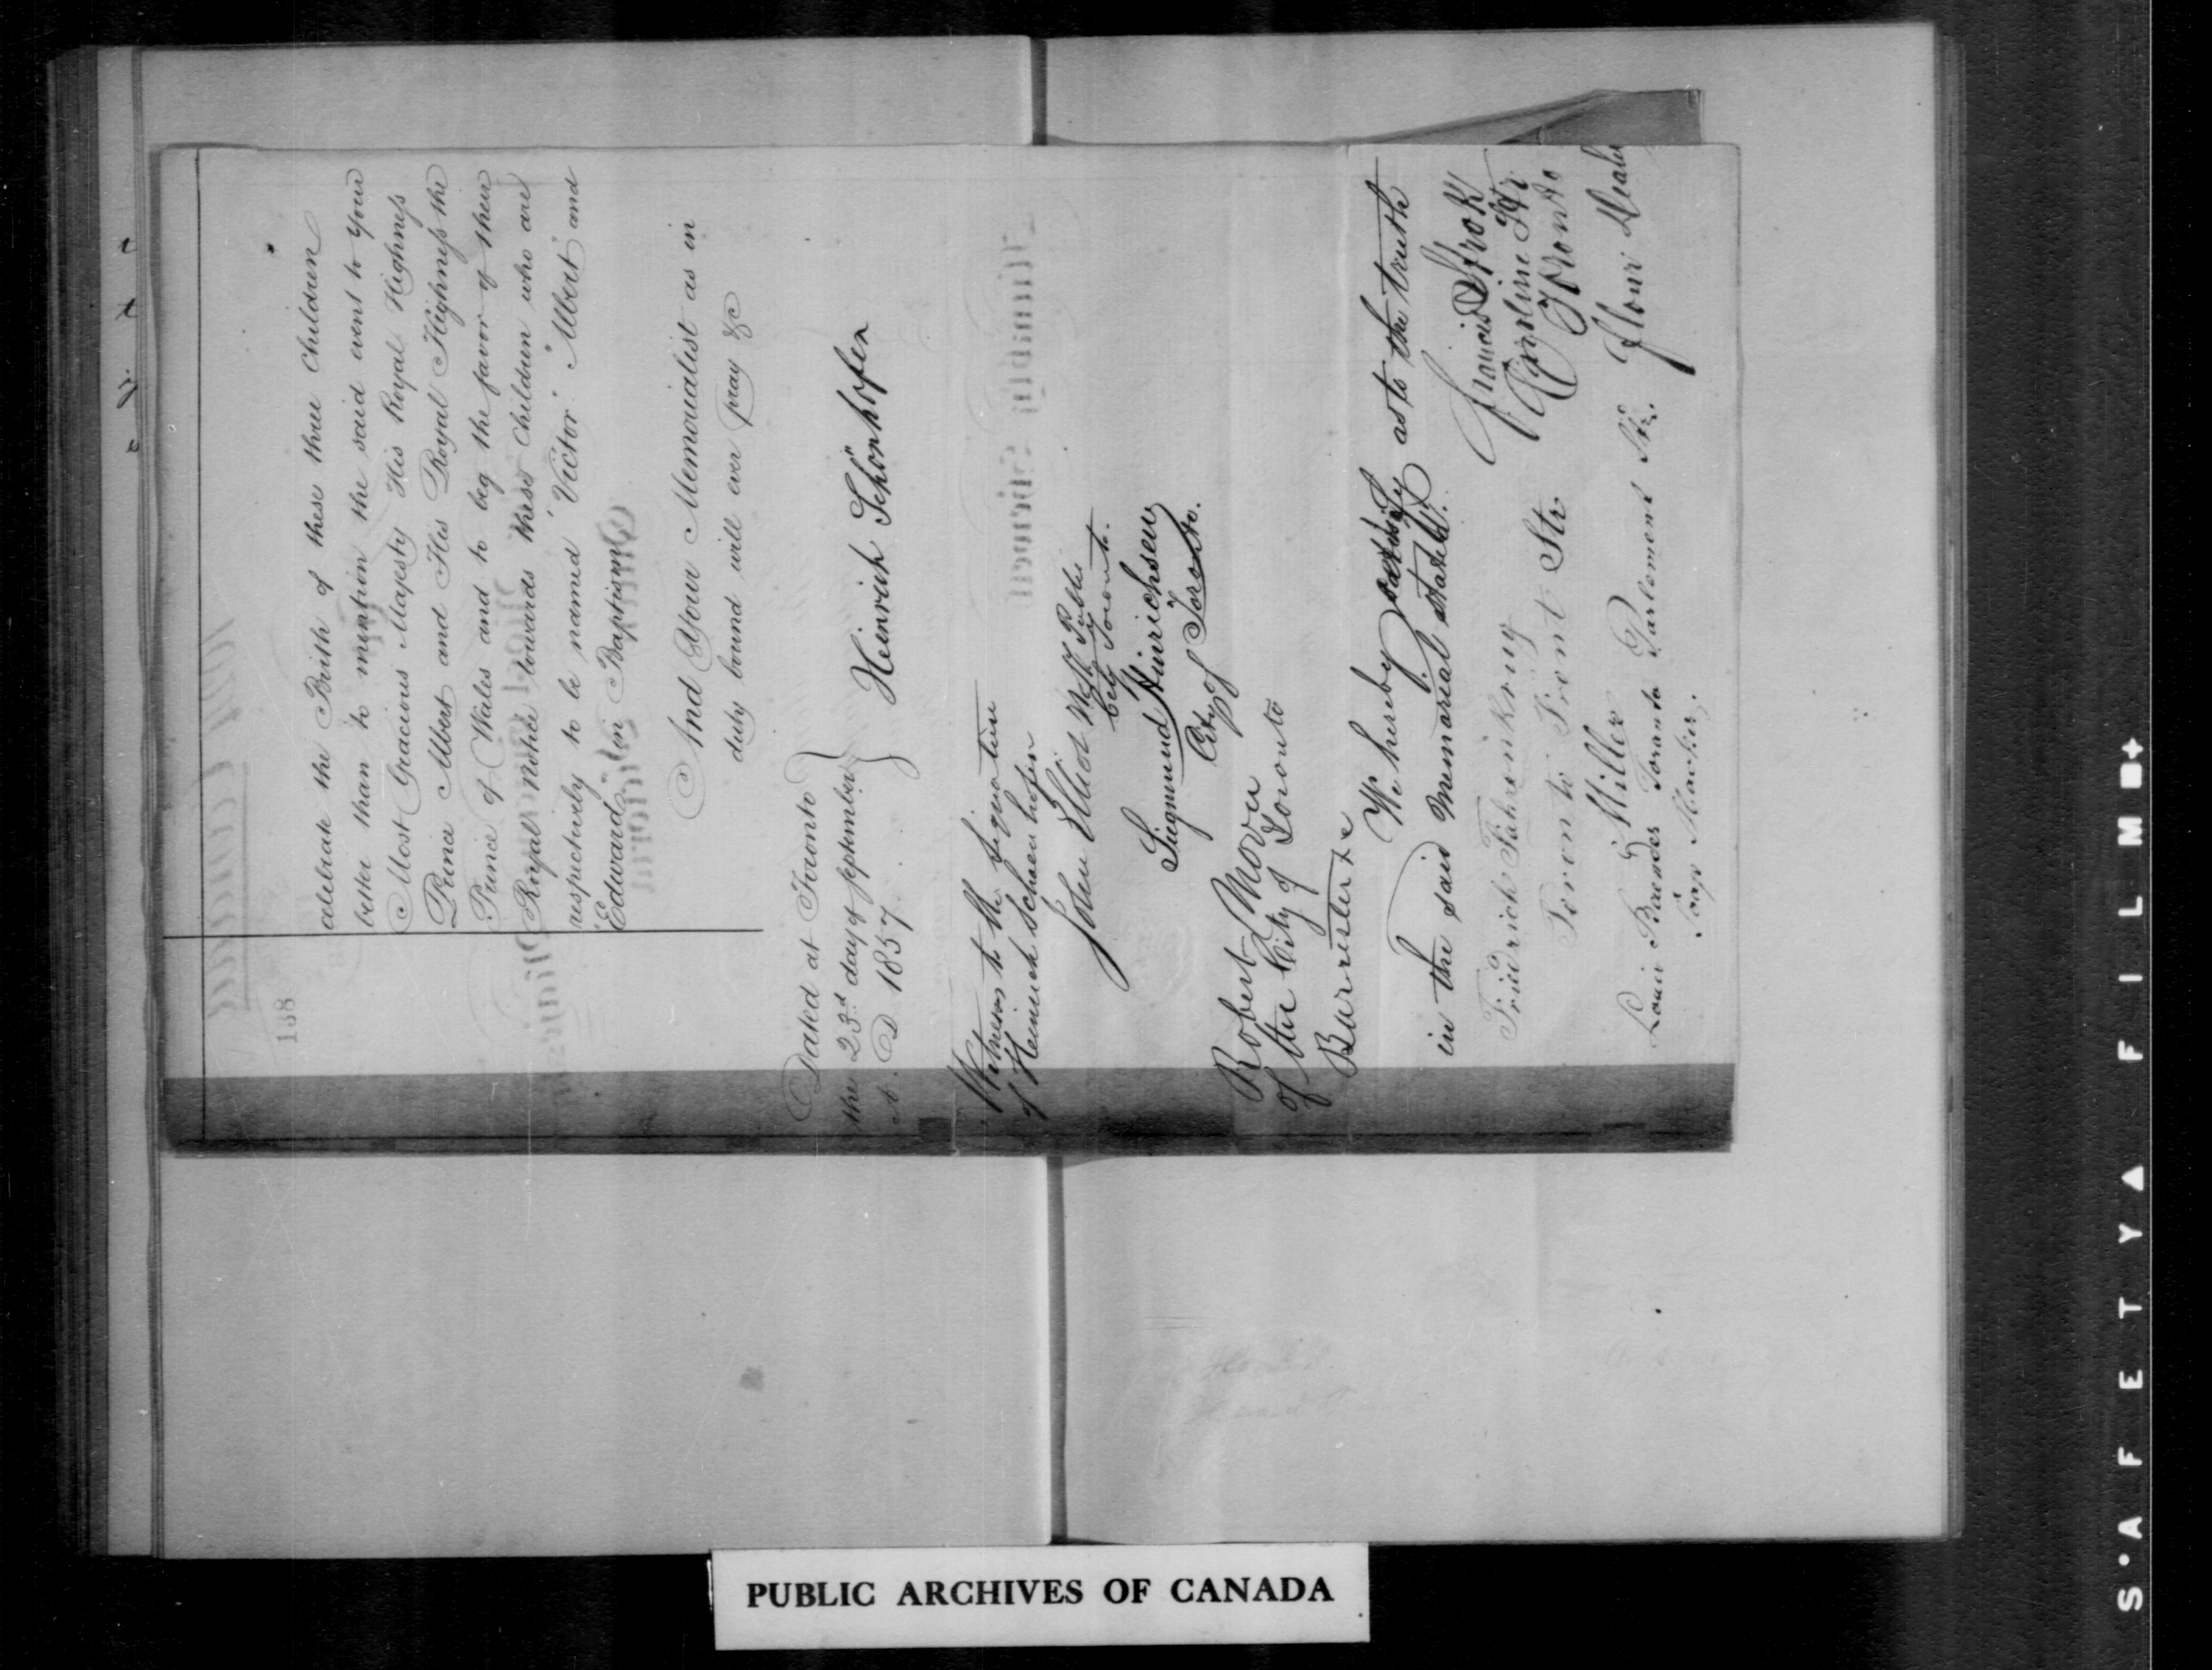 138
celebrate the Birth of these three Children
better than to mention the said event to Your
Most Gracious Majesty His Royal Highness
Prince Albert and His Royal Highness the
Prince of Wales and to beg the favor of their
Royal Notice towards these Children who are
respectively to be named "Victor" "Albert" and
"Edward" in Baptism
And Your Memorialist as in
duty bound will ever pray &c
Dated at Toronto
the 23rd day of September
A. D 1857
Heinrich Schönhofen
Witness to the signature
of Heinrich Schoenhofen
John Elliot
City Toronto.
Siegmund Hinrichsen
City of Toronto.
Robert Moore
of the City of Toronto
Barrister &c
We hereby certify as to the truth
in the said Memorial stated.
Francis
Caroline Str
Toronto
Flour Dealer
Friedrich Fahrenkrug
Toronto Front Str.
Miller
Louis Baender Toronto Parlement Str.